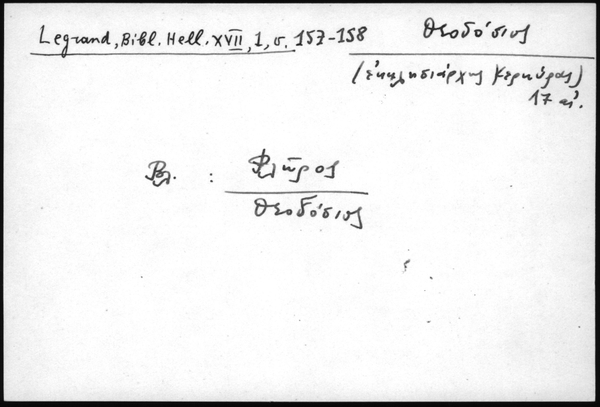 Legrand, Bibl. Hell. XVII, 1, σ. 157-158
Θεοδόσιος
(ἐκκλησιάρχης Κερκύρας)
17 αἰ.
Βλ. : Φλῶρος
Θεοδόσιος